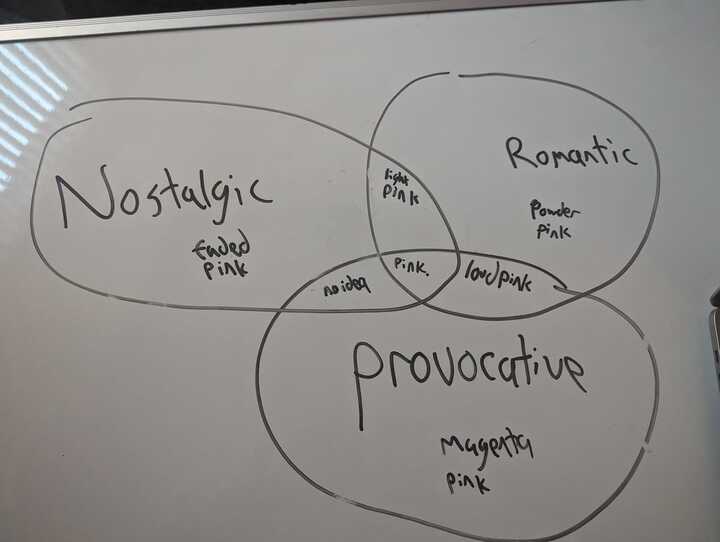 Nostalgic
Faded
pink
light
pink
Romantic
Powder
pink
no idea
pink.
loud pink
provocative
Magenta
pink